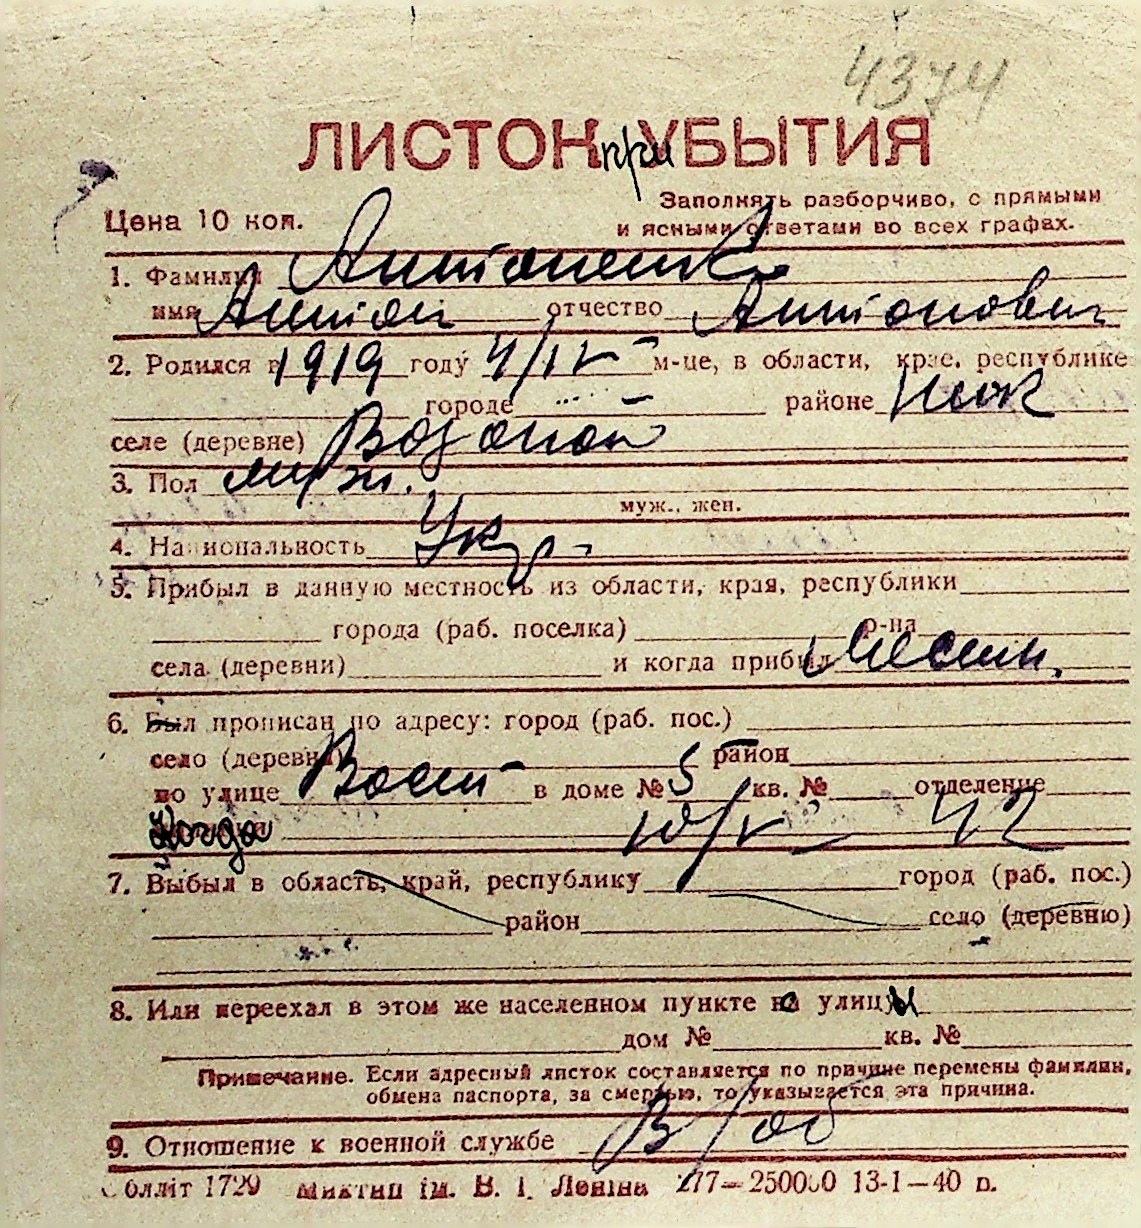 4374
ЛИСТОК приУБЫТИЯ
Цена 10 коп.
Заполнять разборчиво, с прямыми
и ясными ответами во всех графах.
1. Фамилия Антоненко
имя Антон отчество Антонович
2. Родился в 1919 году 4/IV – м-це, в области, крае, республике
городе – районе Ник
селе (деревне)
3. Пол муж.
муж., жен.
4. Национальность Укр –
5. Прибыл в данную местность из области, края, республики
города (раб. поселка) р-на
села (деревни) и когда прибыл Местн.
6. Был прописан по адресу: город (раб. пос.)
село (деревня) район
по улице Вост – в доме № 5 кв. № отделение
Когда 10/V – 42
7. Выбыл в область, край, республику город (раб. пос.)
район село (деревню)
8. Или переехал в этом же населенном пункте с улицы
дом № кв. №
Примечание. Если адресный листок составляется по причине перемены фамилии,
обмена паспорта, за смертью, то указывается эта причина.
9. Отношение к военной службе В/об
Облліт 1729 ім. В. І. Леніна 277—250000 13-1—40 р.